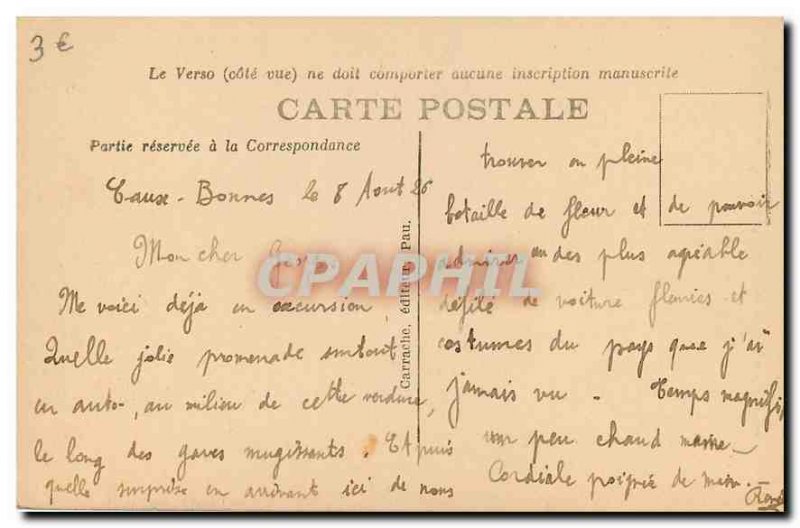 3 €
Le Verso (côté vue) ne doit comporter aucune inscription manuscrite
CARTE POSTALE
Partie réservée à la Correspondance
Eaux-Bonnes le 8 Aout 26
Mon cher
Me voici déjà en excursion
Quelle jolie promenade surtout
en auto, au milieu de cette verdure,
le long des gaves mugissants. Et puis
quelle surprise en arrivant ici de nous
Carrache, éditeur, Pau.
trouver en pleine
bataille de fleur et de pouvoir
admirer un des plus agréable
défilé de voiture fleuries et
costumes du pays que j'ai
jamais vu. Temps magnifi
un peu chaud même
Cordiale poignée de main.
René
CPAPHIL